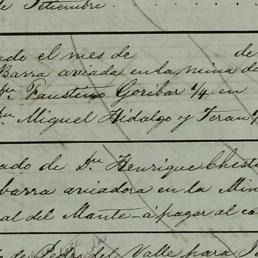 de Setiembre.
ado el mes de de
Barra aviada en la mina de
Dn. Faustino Goribar 1/4 en
Dn. Miguel Hidalgo y Teran 1/
ado de Dn. Henrique Chest
barra aviadora en la Min
al del Monte - á pagar al co
de Pedro del Valle para